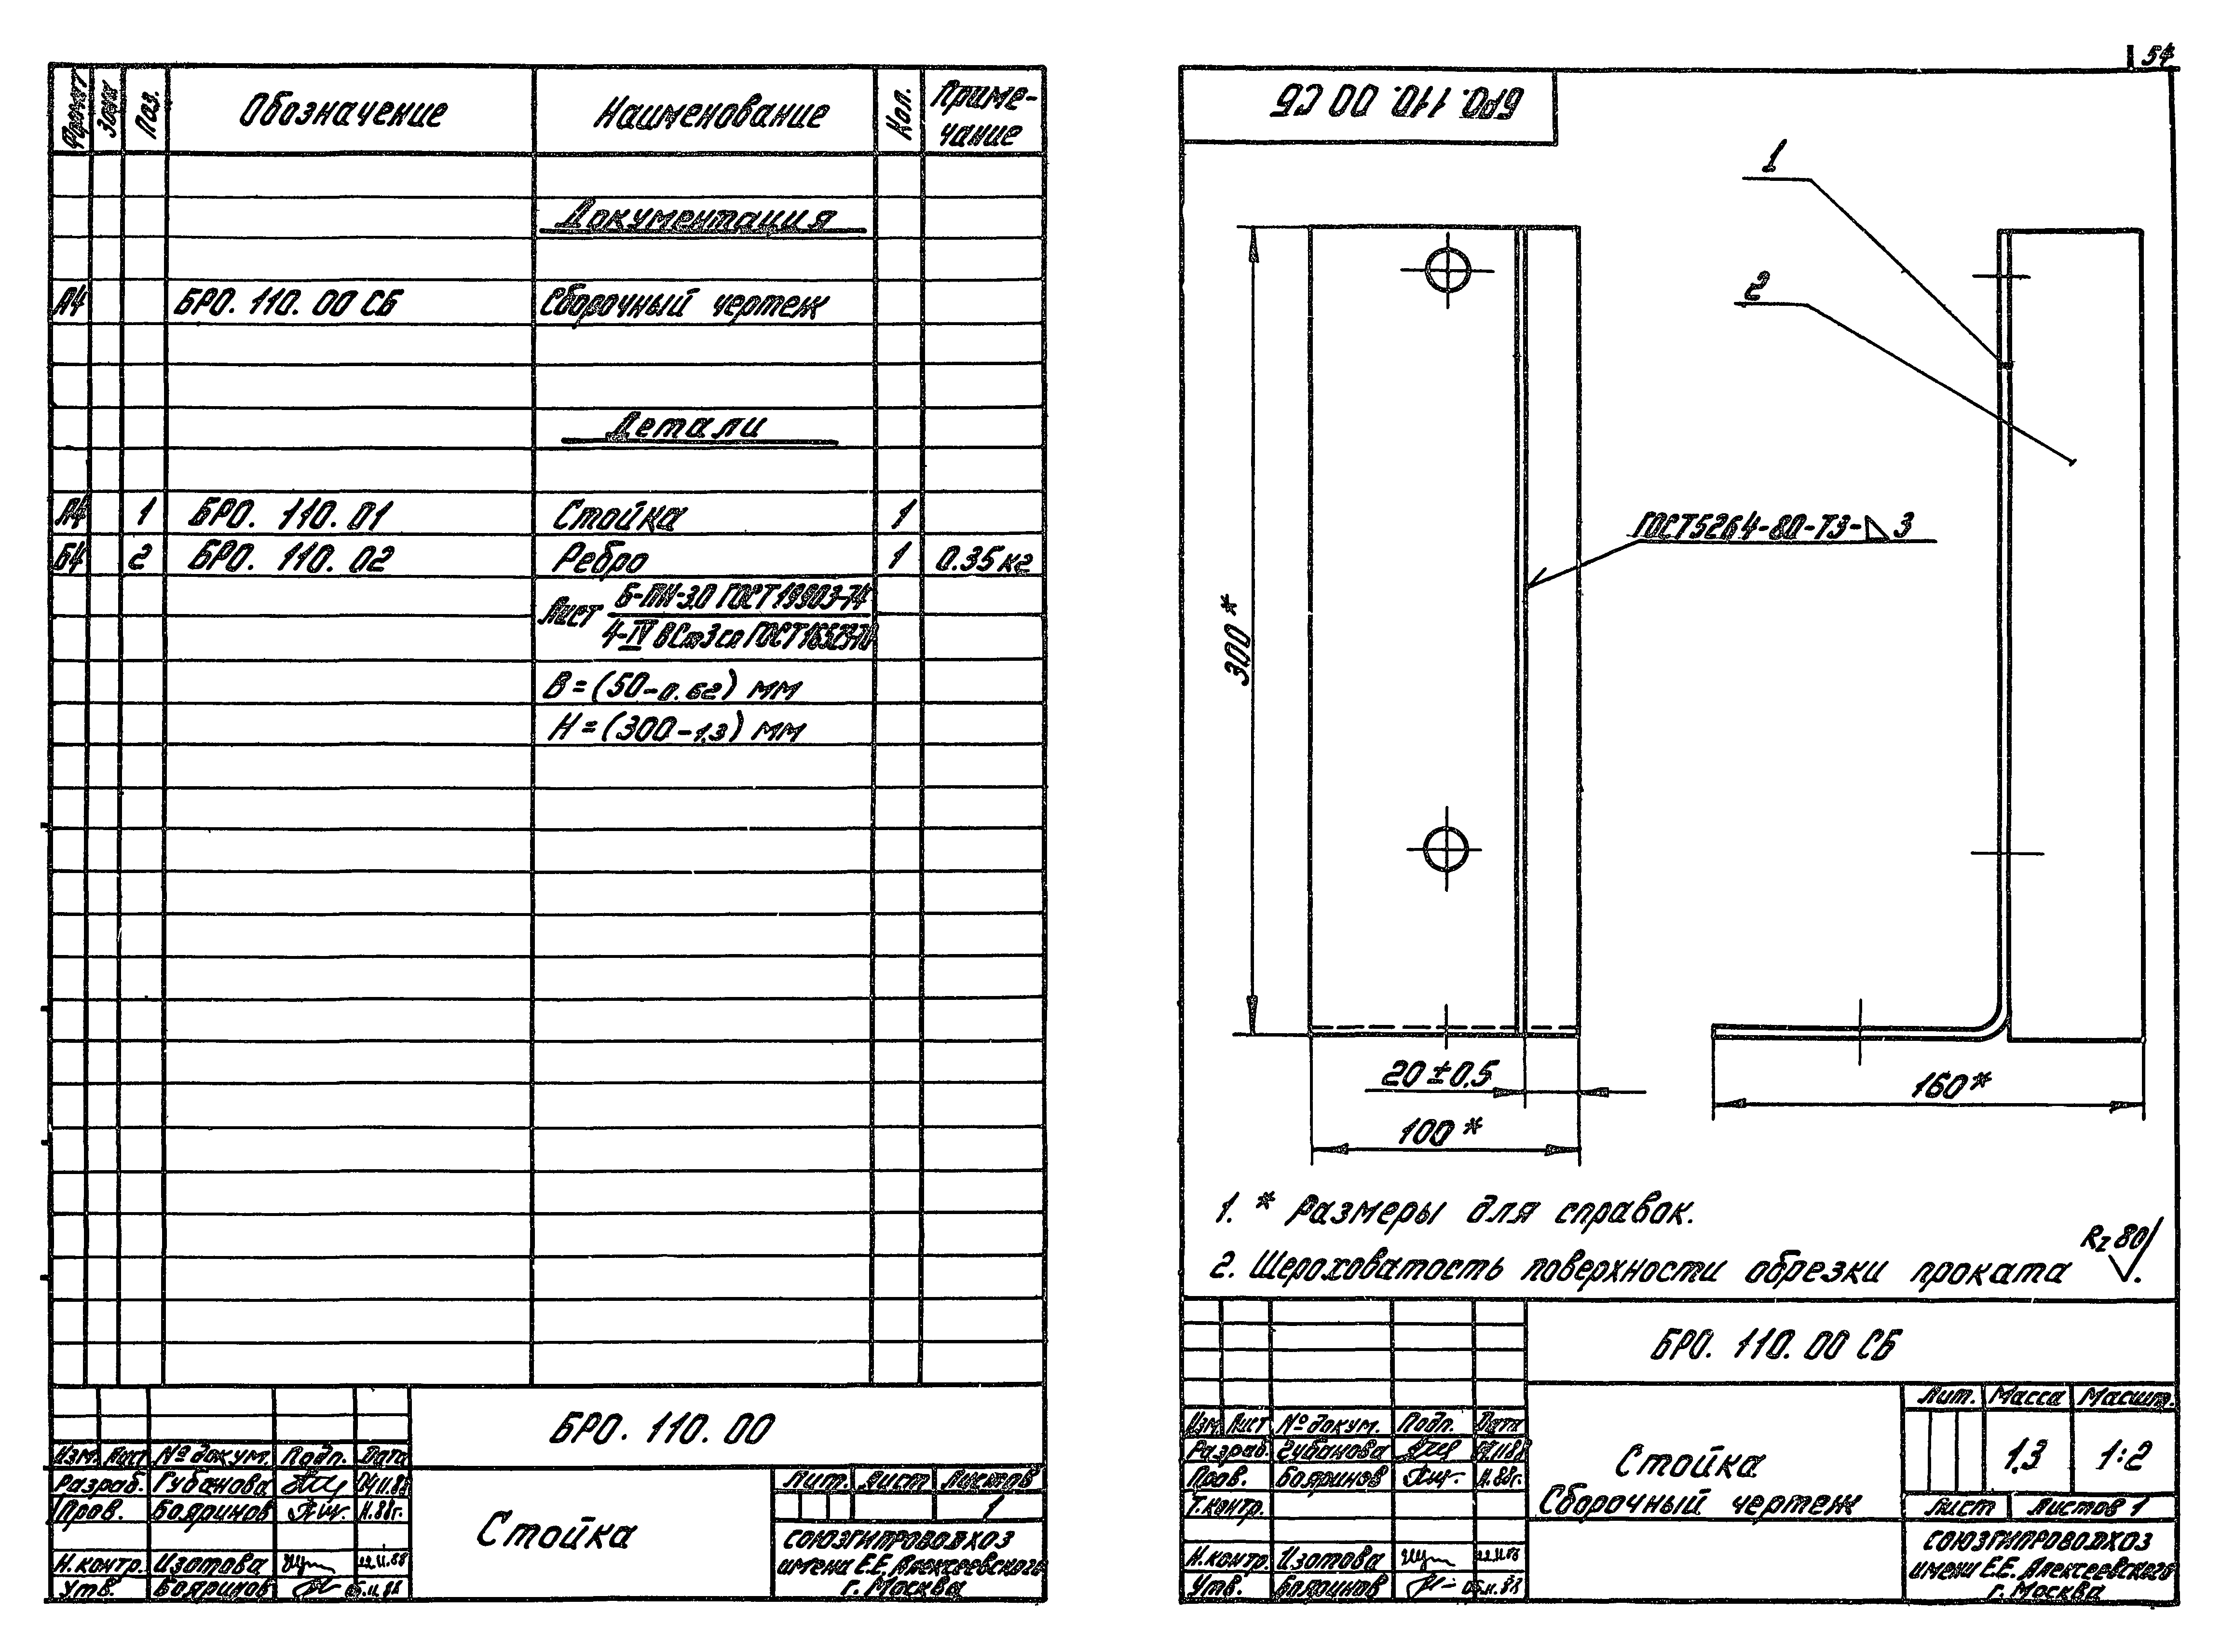 Формат Зона Поз. Обозначение Наименование Кол. Приме-
чание
Документация
А4 БРО. 110. 00 СБ Сборочный чертеж
Детали
А4 1 БРО. 110. 01 Стойка 1
Б4 2 БРО. 110. 02 Ребро 1 0.35 кг
Лист Б-ПН-3.0 ГОСТ 19903-74
4-IV ВСт3сп ГОСТ 16523-70
В = (50-0.62) мм
Н = (300-1.3) мм
БРО. 110. 00
Изм. Лист № докум. Подп. Дата
Разраб. Губанова 04.11.88
Пров. Бояринов 11.88г.
Н.контр. Изотова 22.11.88
Утв. Бояринов 05.11.88
Стойка
Лит. Лист Листов
1
СОЮЗГИПРОВОДХОЗ
имени Е.Е. Алексеевского
г. Москва
54
БРО. 110. 00 СБ
1
2
ГОСТ 5264-80-Т3-◺ 3
300*
20±0.5
100*
160*
1. * Размеры для справок.
2. Шероховатость поверхности обрезки проката Rz 80.
БРО. 110. 00 СБ
Изм Лист № докум. Подп. Дата
Разраб. Губанова
Пров. Бояринов 11.88г.
Т.контр.
Н.контр. Изотова 22.11.88
Утв. Бояринов 05.11.88
Стойка
Сборочный чертеж
Лит. Масса Масшт.
1.3 1:2
Лист Листов 1
СОЮЗГИПРОВОДХОЗ
имени Е.Е. Алексеевского
г. Москва